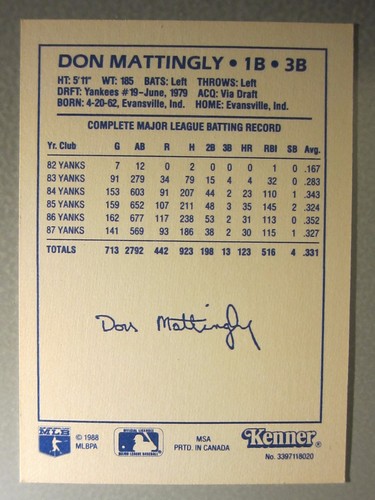 DON MATTINGLY • 1B • 3B
HT: 5'11" WT: 185 BATS: Left THROWS: Left
DRFT: Yankees #19-June, 1979 ACQ: Via Draft
BORN: 4-20-62, Evansville, Ind. HOME: Evansville, Ind.
COMPLETE MAJOR LEAGUE BATTING RECORD
Yr. Club G AB R H 2B 3B HR RBI SB Avg.
82 YANKS 7 12 0 2 0 0 0 1 0 .167
83 YANKS 91 279 34 79 15 4 4 32 0 .283
84 YANKS 153 603 91 207 44 2 23 110 1 .343
85 YANKS 159 652 107 211 48 3 35 145 2 .324
86 YANKS 162 677 117 238 53 2 31 113 0 .352
87 YANKS 141 569 93 186 38 2 30 115 1 .327
TOTALS 713 2792 442 923 198 13 123 516 4 .331
Don Mattingly
MLB © 1988 MLBPA
MSA
PRTD. IN CANADA
Kenner®
No. 3397118020